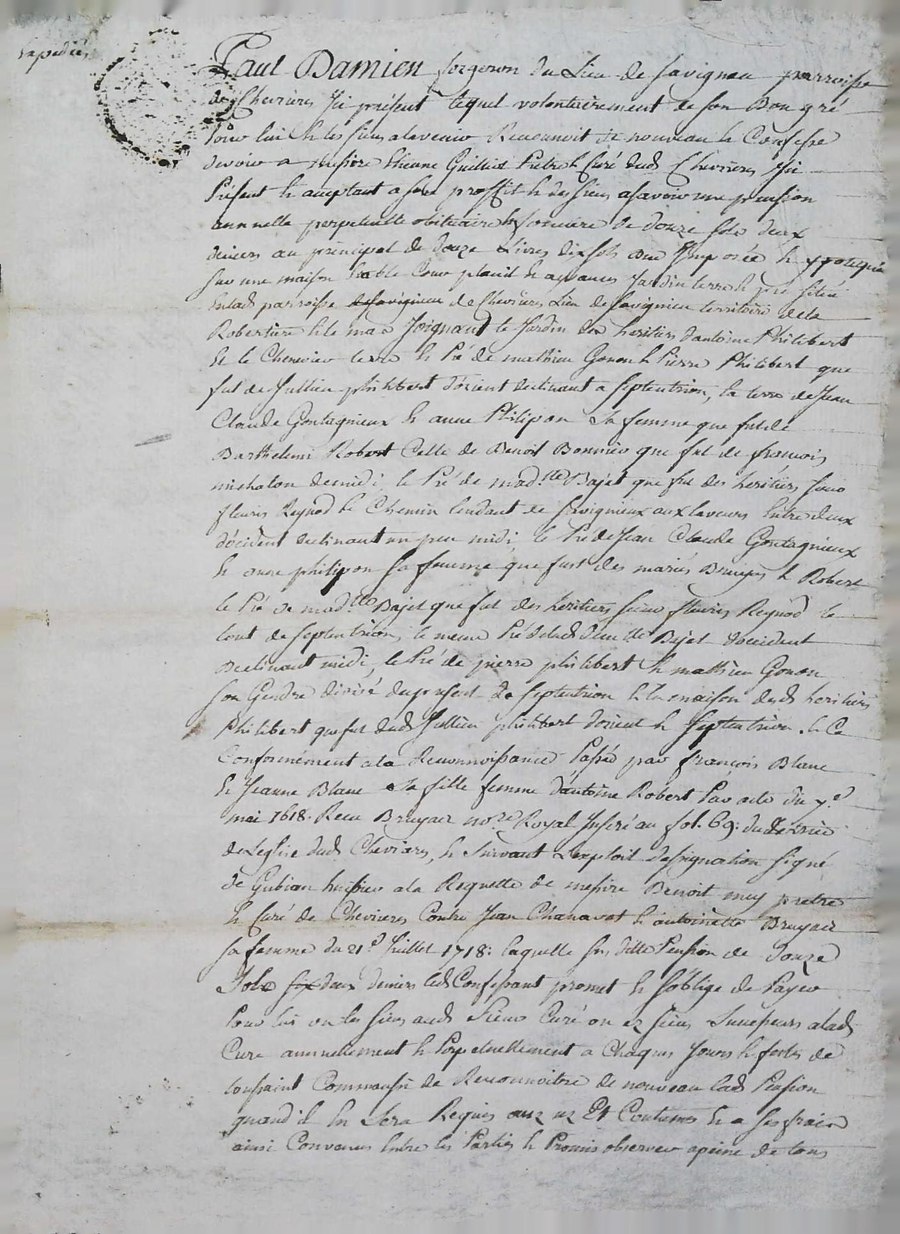 Expedié
Paul Damien forgeron du Lieu de Savigneu parroisse
de Chevrieres Ici présent lequel volontairement de son Bon gré
pour lui & les siens alavenir Reconnoit de nouveau & Confesse
devoir a messire Etienne Prêtre & Curé dud. Chevrieres Ici
Présent & acceptant a son proffit & des siens asavoir une pension
annuelle perpetuelle obituaire & fonciere de douze sols deux
deniers au principal de douze Livres dix sols Imposée & ypotequée
sur une maison Etable Cour placit & aysances Jardin terre & pré située
enlad parroisse de Chevrieres Lieu de Savignieu territoire de la
Robertiere & le mas Joignant le Jardin des heritiers dantoine Philibert
& le Chenevier terre & Pré de mathieu Gonon & Pierre Philibert que
fut de Jullien philibert d'orient declinant a septentrion, la terre de Jean
Claude Gontagnieux & anne Philipon Sa femme que fut de
Barthelemi Robert Celle de Benoit Bonnier que fut de francois
michalon demidi, le Pré de madlle Bajet que fut des heritiers sieur
fleuris Reynod le Chemin tendant de savignieux aux laveurs Entre deux
d'occident declinant un peu midi, le Pré de Jean Claude Gontagnieux
& anne philipon sa femme que fust des mariés Bruyas & Robert
le Pré de madlle Bajet que fut des heritiers sieur fleuris Reynod le
tout de septentrion, le meme Pré delad. Bajet doccident
Declinant midi, le Pré de pierre philibert & mathieu Gonon
son Gendre divisé duprésent de septentrion & la maison desd. heritiers
Philibert que fut dud. Jullien philibert dorient & septentrion. & Ce
Conformément a la Reconnoissance Passée par françois Blanc
& Jeanne Blanc sa fille femme d'antoine Robert Par acte du 7.e
mai 1618. Recu Bruyas nore Royal Inseré au fol. 69. du Terrier
de Leglise dud. Chevrieres, & suivant Lexploit dasignation signé
de Gubian huissier a la Requette de messire Benoit muy pretre
& Curé de Chevrieres Contre Jean Chanavat & antoinette Bruyas
sa femme du 21.e Juillet 1718. laquelle susditte Pension de douze
Sols deux deniers led. Confessant promet & s'oblige de Payer
pour lui ou les siens aud. Sieur Curé ou ez siens Successeurs alad.
Cure annuellement & Perpetuellement a Chaques Jours & fectes de
toussaint Comm'aussi de Reconnoitre de nouveau lad. Pension
quand il En sera Requis aux uz Et Coutumes & a ses fraix
ainsi Convenus Entre les Parties & Promis observer apeine de tous